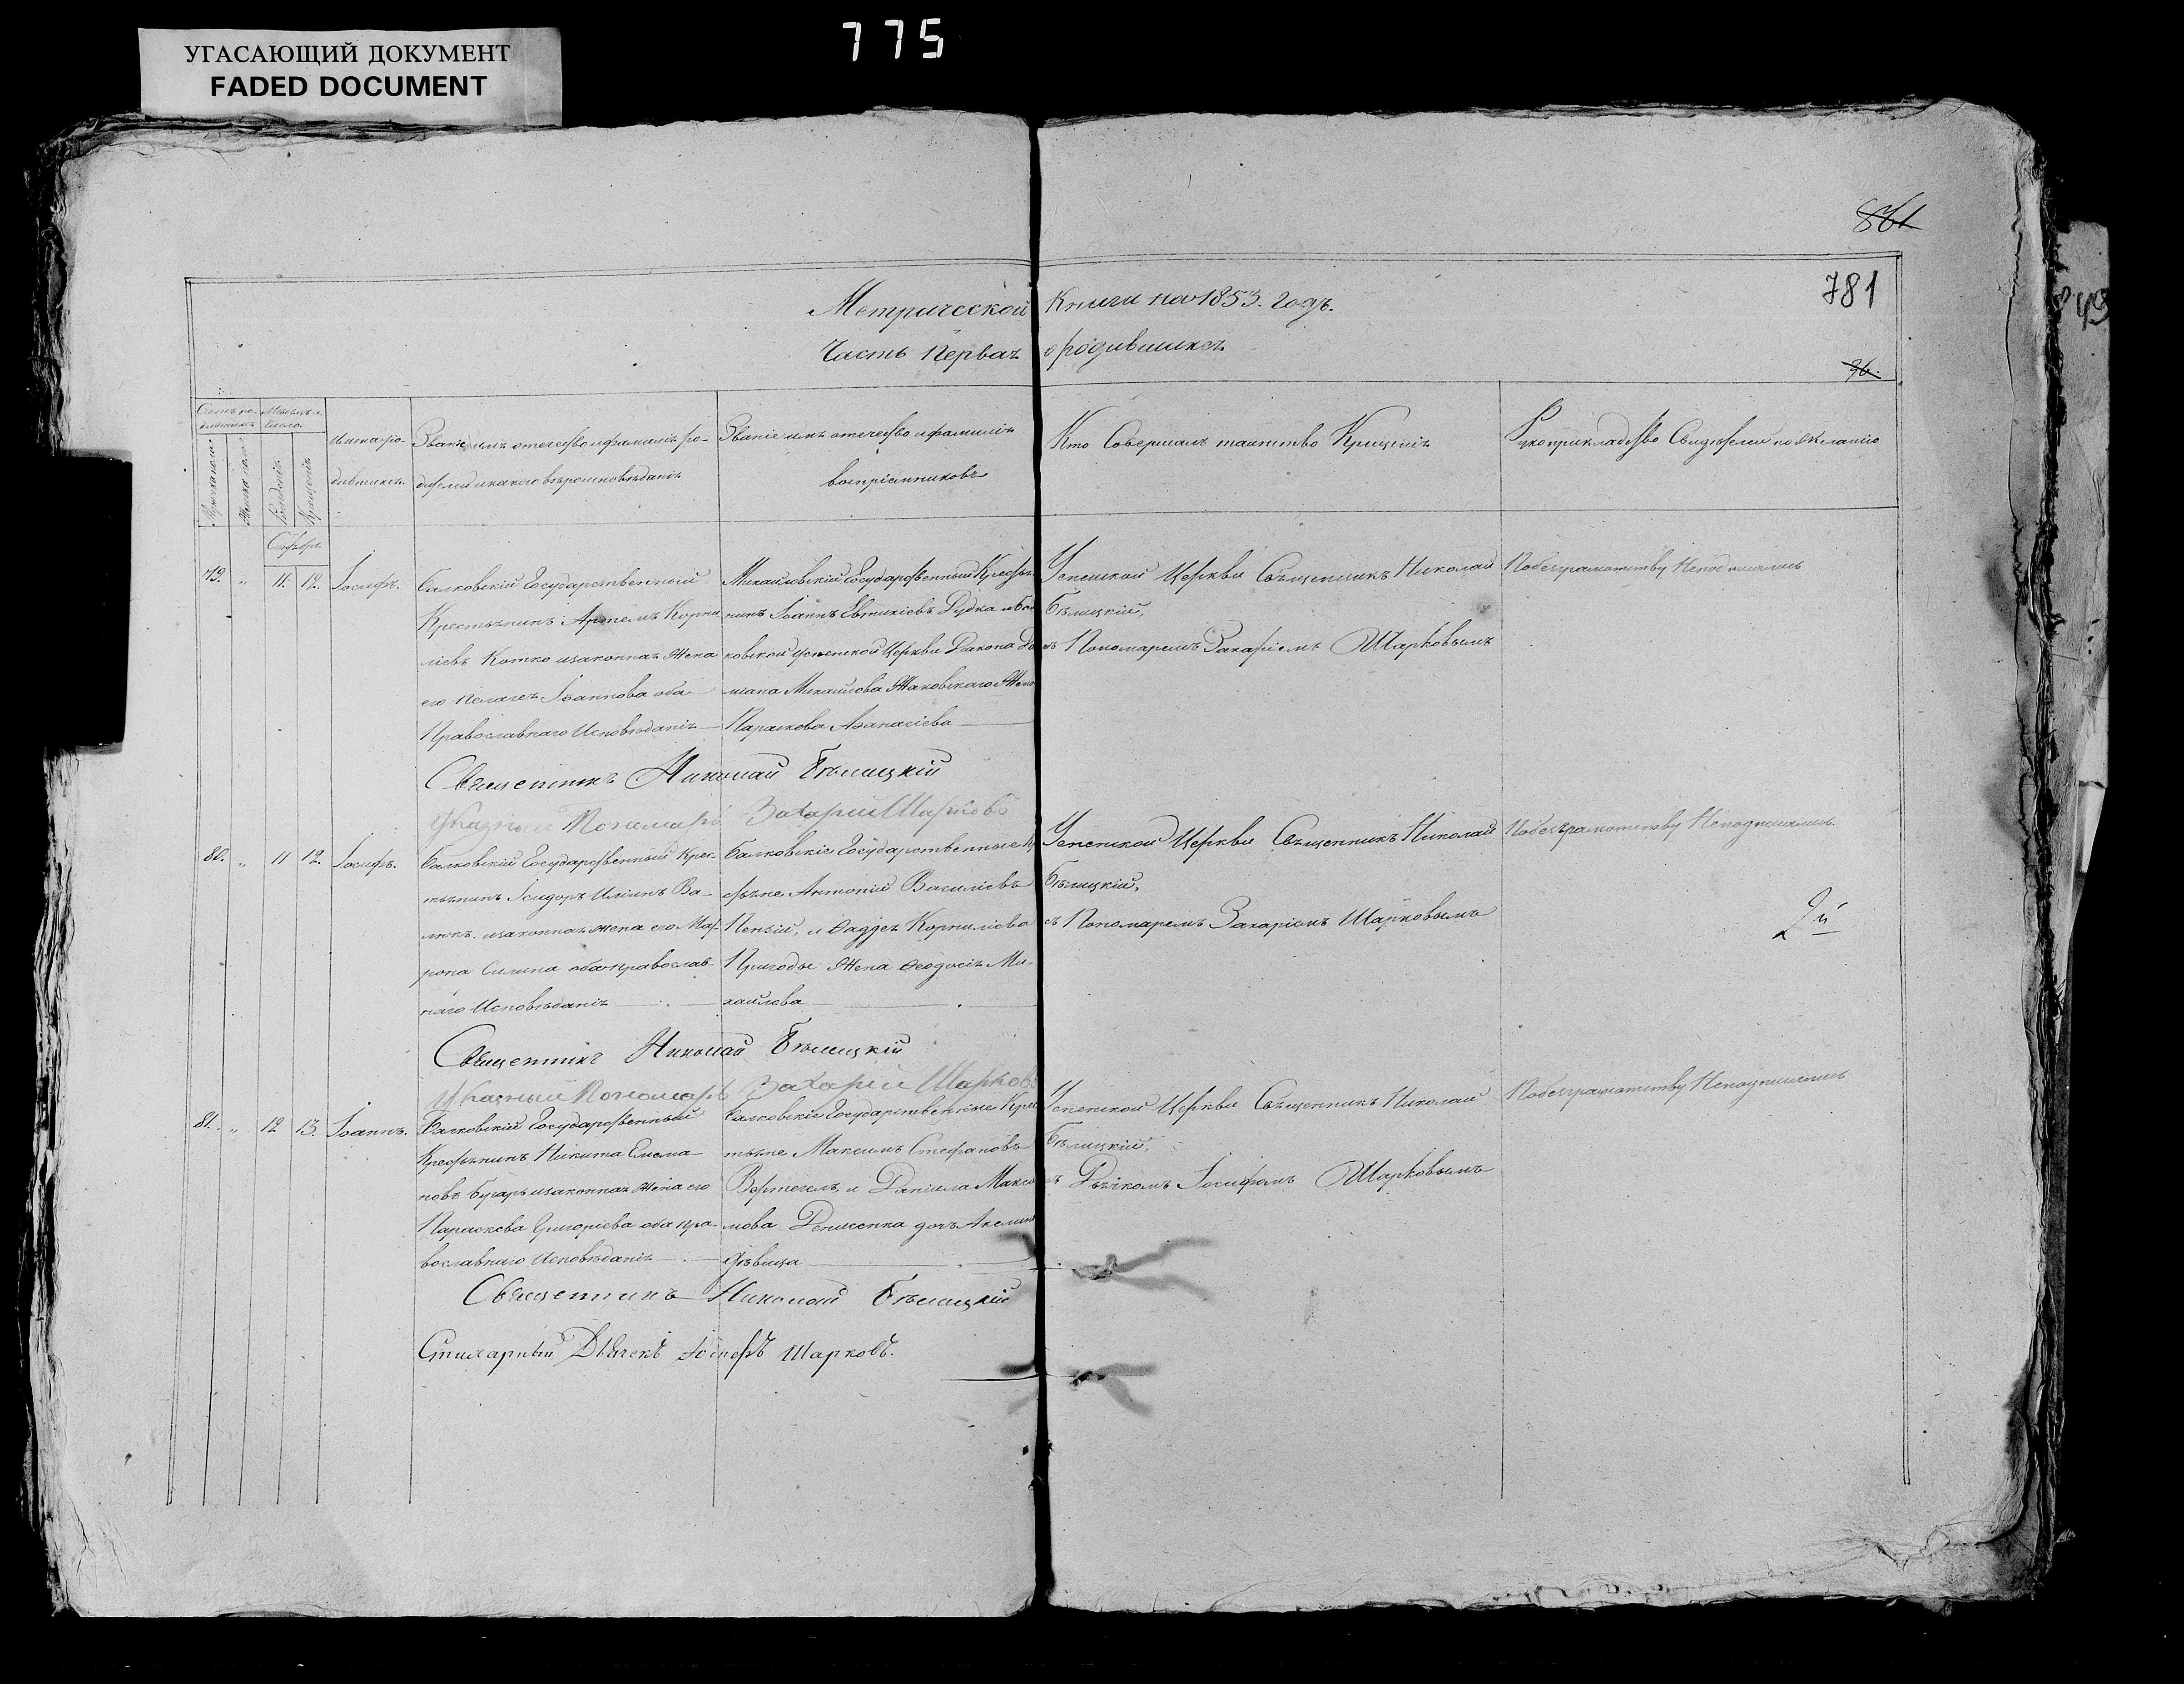 УГАСАЮЩИЙ ДОКУМЕНТ
FADED DOCUMENT
775
861
781
Метрической Книги на 1853. Годъ.
Часть Первая о родившихся
96.
Счетъ ро-
дившихся
Мѣсяцъ и
число.
Мужеска пола
Женска пола
Рожденія
Крещенія
Имена ро-
дившихся.
Званіе имя отечество и фамилія ро-
дителей и какого вѣроисповѣданія
Званіе имя отечество и фамилія
воспріемниковъ
Кто Совершалъ таинство Крещенія
Рукоприкладство Свидѣтелей по желанію
79. " 11. 12. Іосифъ.
Балковскій Государственный
Крестьянинъ Артемъ Корни
ліевъ Котко и законная Жена
его Пелагея Іоаннова оба
Православнаго Исповѣданія
Михайловскій Государственный Крестья
нинъ Іоаннъ Евтихіевъ Дудка и Бал
ковской Успенской Церкви Діакона Да
міана Михайлова Жаковскаго Жена
Параскева Афанасіева
Успенской Церкви Священникъ Николай
Бѣлицкій,
съ Пономаремъ Захаріемъ Шарковымъ
По безграмотству Неподписались
Священникъ Николай Бѣлицкій
Указный Пономарь Захарій Шарковъ
80. " 11 12. Іосифъ.
Балковскій Государственный Крес-
тьянинъ Ісидоръ Иліинъ Ва-
люкъ и законная жена его Мат-
рона Силина оба православ-
наго Исповѣданія
Балковскіе Государственные К
стьяне Антоній Василіевъ
Пензій, и Фаддея Корниліева
Пригоды Жена Феодосія Ми-
хайлова
Успенской Церкви Священникъ Николай
Бѣлицкій,
съ Пономаремъ Захаріемъ Шарковымъ
По безграмотству Неподписались.
2й
Священникъ Николай Бѣлицкій
Указный Пономарь Захарій Шарковъ
81. " 12 13. Іоаннъ.
Балковскій Государственный
Крестьянинъ Никита
новъ Бугаръ и законная Жена его
Параскева Григоріева оба пра-
вославнаго Исповѣданія
Балковскіе Государственные Крес
тьяне Максимъ Стефановъ
Вертегелъ, и Даніила Макси
мова Денисенка дочь Акелина
дѣвица
Успенской Церкви Священникъ Николай
Бѣлицкій,
съ Дьячкомъ Іосифомъ Шарковымъ
По безграмотству Неподписались
Священникъ Николай Бѣлицкій
Стихарный Дьячекъ Іосифъ Шарковъ.